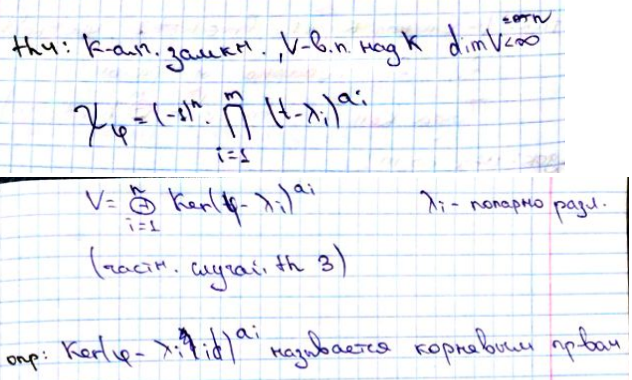 th4: K-алг. замкн., V-в.п. над K dimV<∞ =n
χφ = (-1)ⁿ · ∏ᵢ₌₁ᵐ (t-λᵢ)^aᵢ
V = ⊕ᵢ₌₁ⁿ Ker(φ-λᵢ)^aᵢ λᵢ - попарно разл.
(частн. случай th 3)
опр: Ker(φ-λᵢ id)^aᵢ называется корневым пр-вом